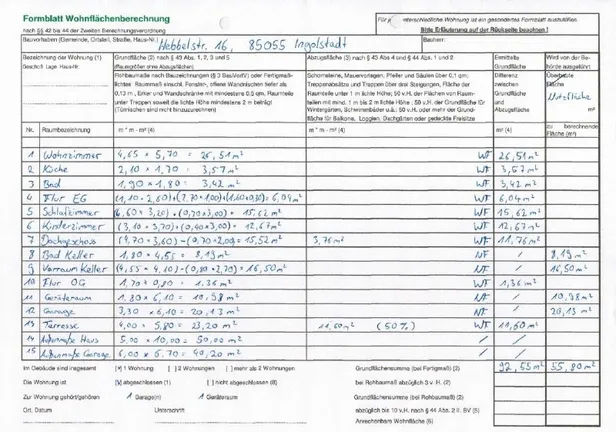 Formblatt Wohnflächenberechnung
nach §§ 42 bis 44 der Zweiten Berechnungsverordnung
Für unterschiedliche Wohnung ist ein gesondertes Formblatt auszufüllen.
Bitte Erläuterung auf der Rückseite beachten!
Bauvorhaben (Gemeinde, Ortsteil, Straße, Haus-Nr.) Hebbelstr. 16, 85055 Ingolstadt
Bauherr:
Bezeichnung der Wohnung (1)
Geschoß Lage Haus-Nr.
Grundfläche (2) nach § 43 Abs. 1, 2, 3 und 5
(Baugrößen ohne Abzugsflächen)
Rohbaumaße nach Bauzeichnungen (§ 3 BauVorlV) oder Fertigmaß-
lichtes Raummaß einschl. Fenster, offene Wandnischen tiefer als
0,13 m, Erker und Wandschränke mit mindestens 0,5 qm, Raumteile
unter Treppen soweit die lichte Höhe mindestens 2 m beträgt
(Türnischen sind nicht hinzuzurechnen)
Abzugsfläche (3) nach § 43 Abs 4 und § 44 Abs. 1 und 2
Schornsteine, Mauervorlagen, Pfeiler und Säulen über 0,1 qm;
Treppenabsätze und Treppen über drei Steigungen, Fläche der
Raumteile unter 1 m lichte Höhe; 50 v.H. der Flächen von Raum-
teilen mit mind. 1 m bis 2 m lichte Höhe, 50 v.H. der Grundfläche für
Wintergärten, Schwimmbäder u.ä.; 50 v.H. oder mehr der Grundfläche
für Balkone, Loggien, Dachgärten oder gedeckte Freisitze
Ermittelte Grundfläche
Differenz zwischen Grundfläche und Abzugsfläche
Wird von der Behörde ausgeführt
Überbaute Fläche
Nutzfläche
Nr. Raumbezeichnung m * m - m² (4) m * m - m² (4) m² (4) zu berechnende Fläche (m²)
1 Wohnzimmer 4,65 × 5,70 = 26,51 m² WF 26,51 m²
2 Küche 2,10 × 1,70 = 3,57 m² WF 3,57 m²
3 Bad 1,90 × 1,80 = 3,42 m² WF 3,42 m²
4 Flur EG = 6,04 m² WF 6,04 m²
5 Schlafzimmer (4,60 × 3,20) + (0,30 × 3,00) = 15,62 m² WF 15,62 m²
6 Kinderzimmer (3,10 × 3,70) + (0,40 × 3,00) = 12,67 m² WF 12,67 m²
7 Dachgeschoss (4,70 × 3,60) - (0,70 × 2,00) = 15,52 m² 3,76 m² WF 11,76 m²
8 Bad Keller 1,80 × 4,55 = 8,19 m² NF / 8,19 m²
9 Vorraum Keller (4,55 × 4,10) - (0,80 × 2,70) = 16,50 m² NF / 16,50 m²
10 Flur OG 1,70 × 0,80 = 1,36 m² WF 1,36 m²
11 Geräteraum 1,80 × 6,10 = 10,98 m² NF / 10,98 m²
12 Garage 3,30 × 6,10 = 20,13 m² NF / 20,13 m²
13 Terrasse 4,00 × 5,80 = 23,20 m² 11,60 m² (50%) WF 11,60 m²
14 Außenmaße Haus 5,00 × 10,00 = 50,00 m² / /
15 Außenmaße Garage 6,00 × 6,70 = 40,20 m² / /
Im Gebäude sind insgesamt [x] 1 Wohnung [ ] 2 Wohnungen [ ] mehr als 2 Wohnungen Grundflächensumme (bei Fertigmaß) (2) 92,55 m² 55,80 m²
Die Wohnung ist [x] abgeschlossen (1) [ ] nicht abgeschlossen (8) bei Rohbaumaß abzüglich 3 v. H. (2)
Zur Wohnung gehört/gehören 1 Garage(n) 1 Geräteraum Grundflächensumme (bei Rohbaumaß) (2)
Ort, Datum Unterschrift abzüglich bis 10 v.H. nach § 44 Abs. 2 II. BV (5)
Anrechenbare Wohnfläche (6)